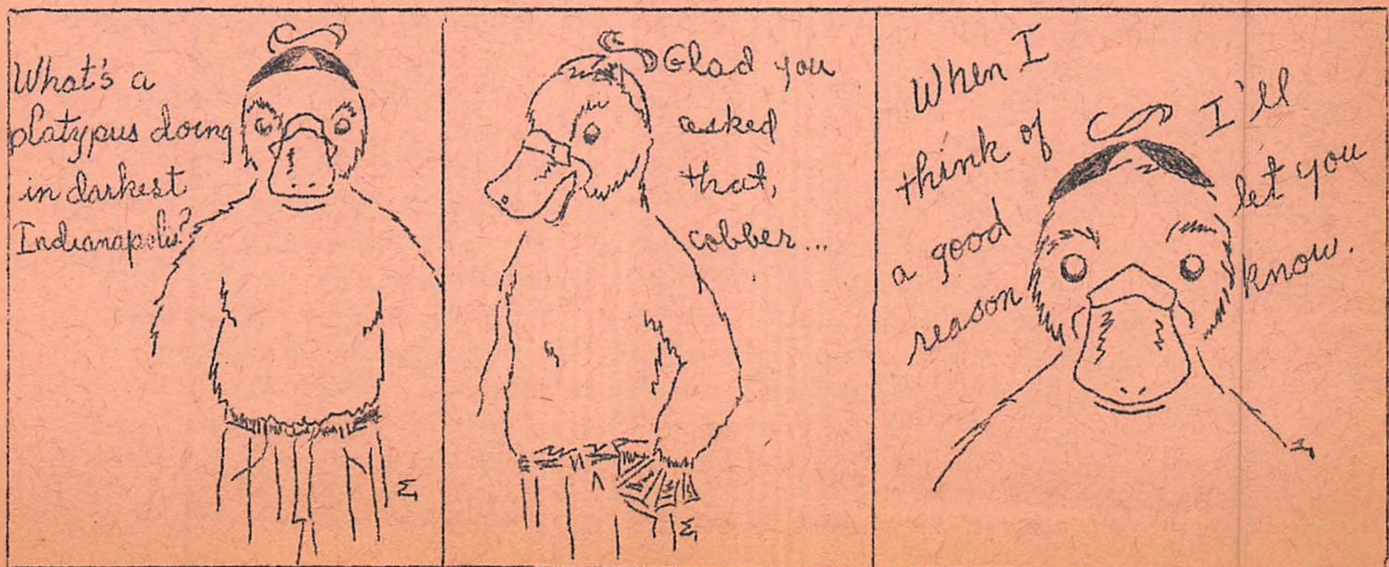 What's a
platypus doing
in darkest
Indianapolis?
Glad you
asked
that,
cobber...
When I
think of
a good
reason
I'll
let you
know.